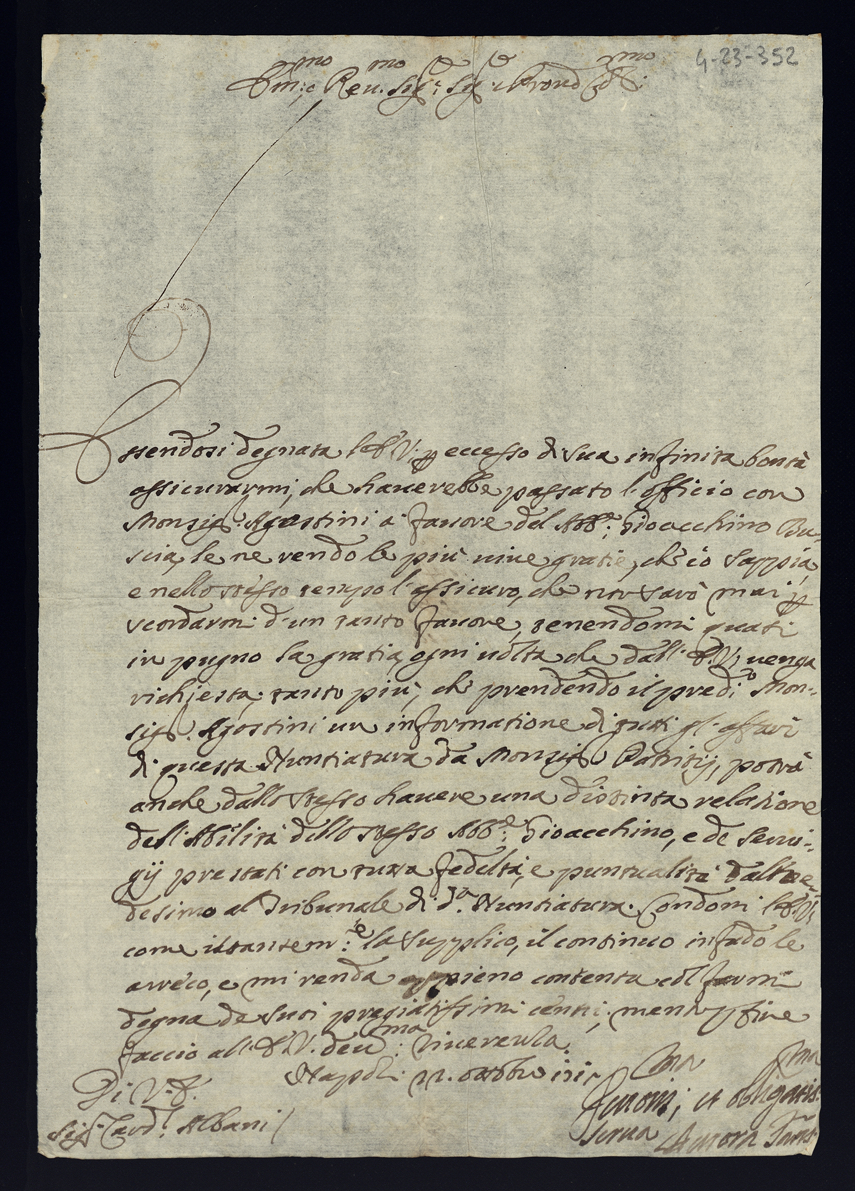 4-23-352
Em:o e Reu.mo Sig.r Sig.r e Pron
Essendosi degnata l'E.V. p eccesso di sua infinita bontà
assicurarmi, che hauerebbe passato l'officio con
Monsig.r Agostini a' fauore del Abb.e Gioacchino Bu-
scia, le ne rendo le più uiue gratie, ch'io sappia,
e nello stesso tempo l'assicuro, che non sarò mai p
scordarmi d'un tanto fauore, tenendomi quasi
in pugno la gratia ogni uolta che dall'E.V. uenga
richiesta; tanto più, che prendendo il pred.o Mon-
sig.r Agostini un informatione di tutti gl'affari
di questa Nuntiatura da Monsig.r Patritij, potrà
anche dallo stesso hauere una distinta relatione
dell'Abilità dello stesso Abb.e Gioacchino, e de serui-
gij prestati con tutta fedeltà, e puntualità dal me-
desimo al Tribunale di d.a Nuntiatura. Condoni l'E.V.
come istantem.te la supplico, il continuo infado le
arreco, e mi renda appieno contenta col farmi
degna de suoi pregiatissimi cenni, mentre p fine
faccio all'E.V. deu.ma riuerenza.
Napoli 22. ottobre
Di V.E.
Sig.r Card.l Albani
et obligatis.ma
Serua Aurora